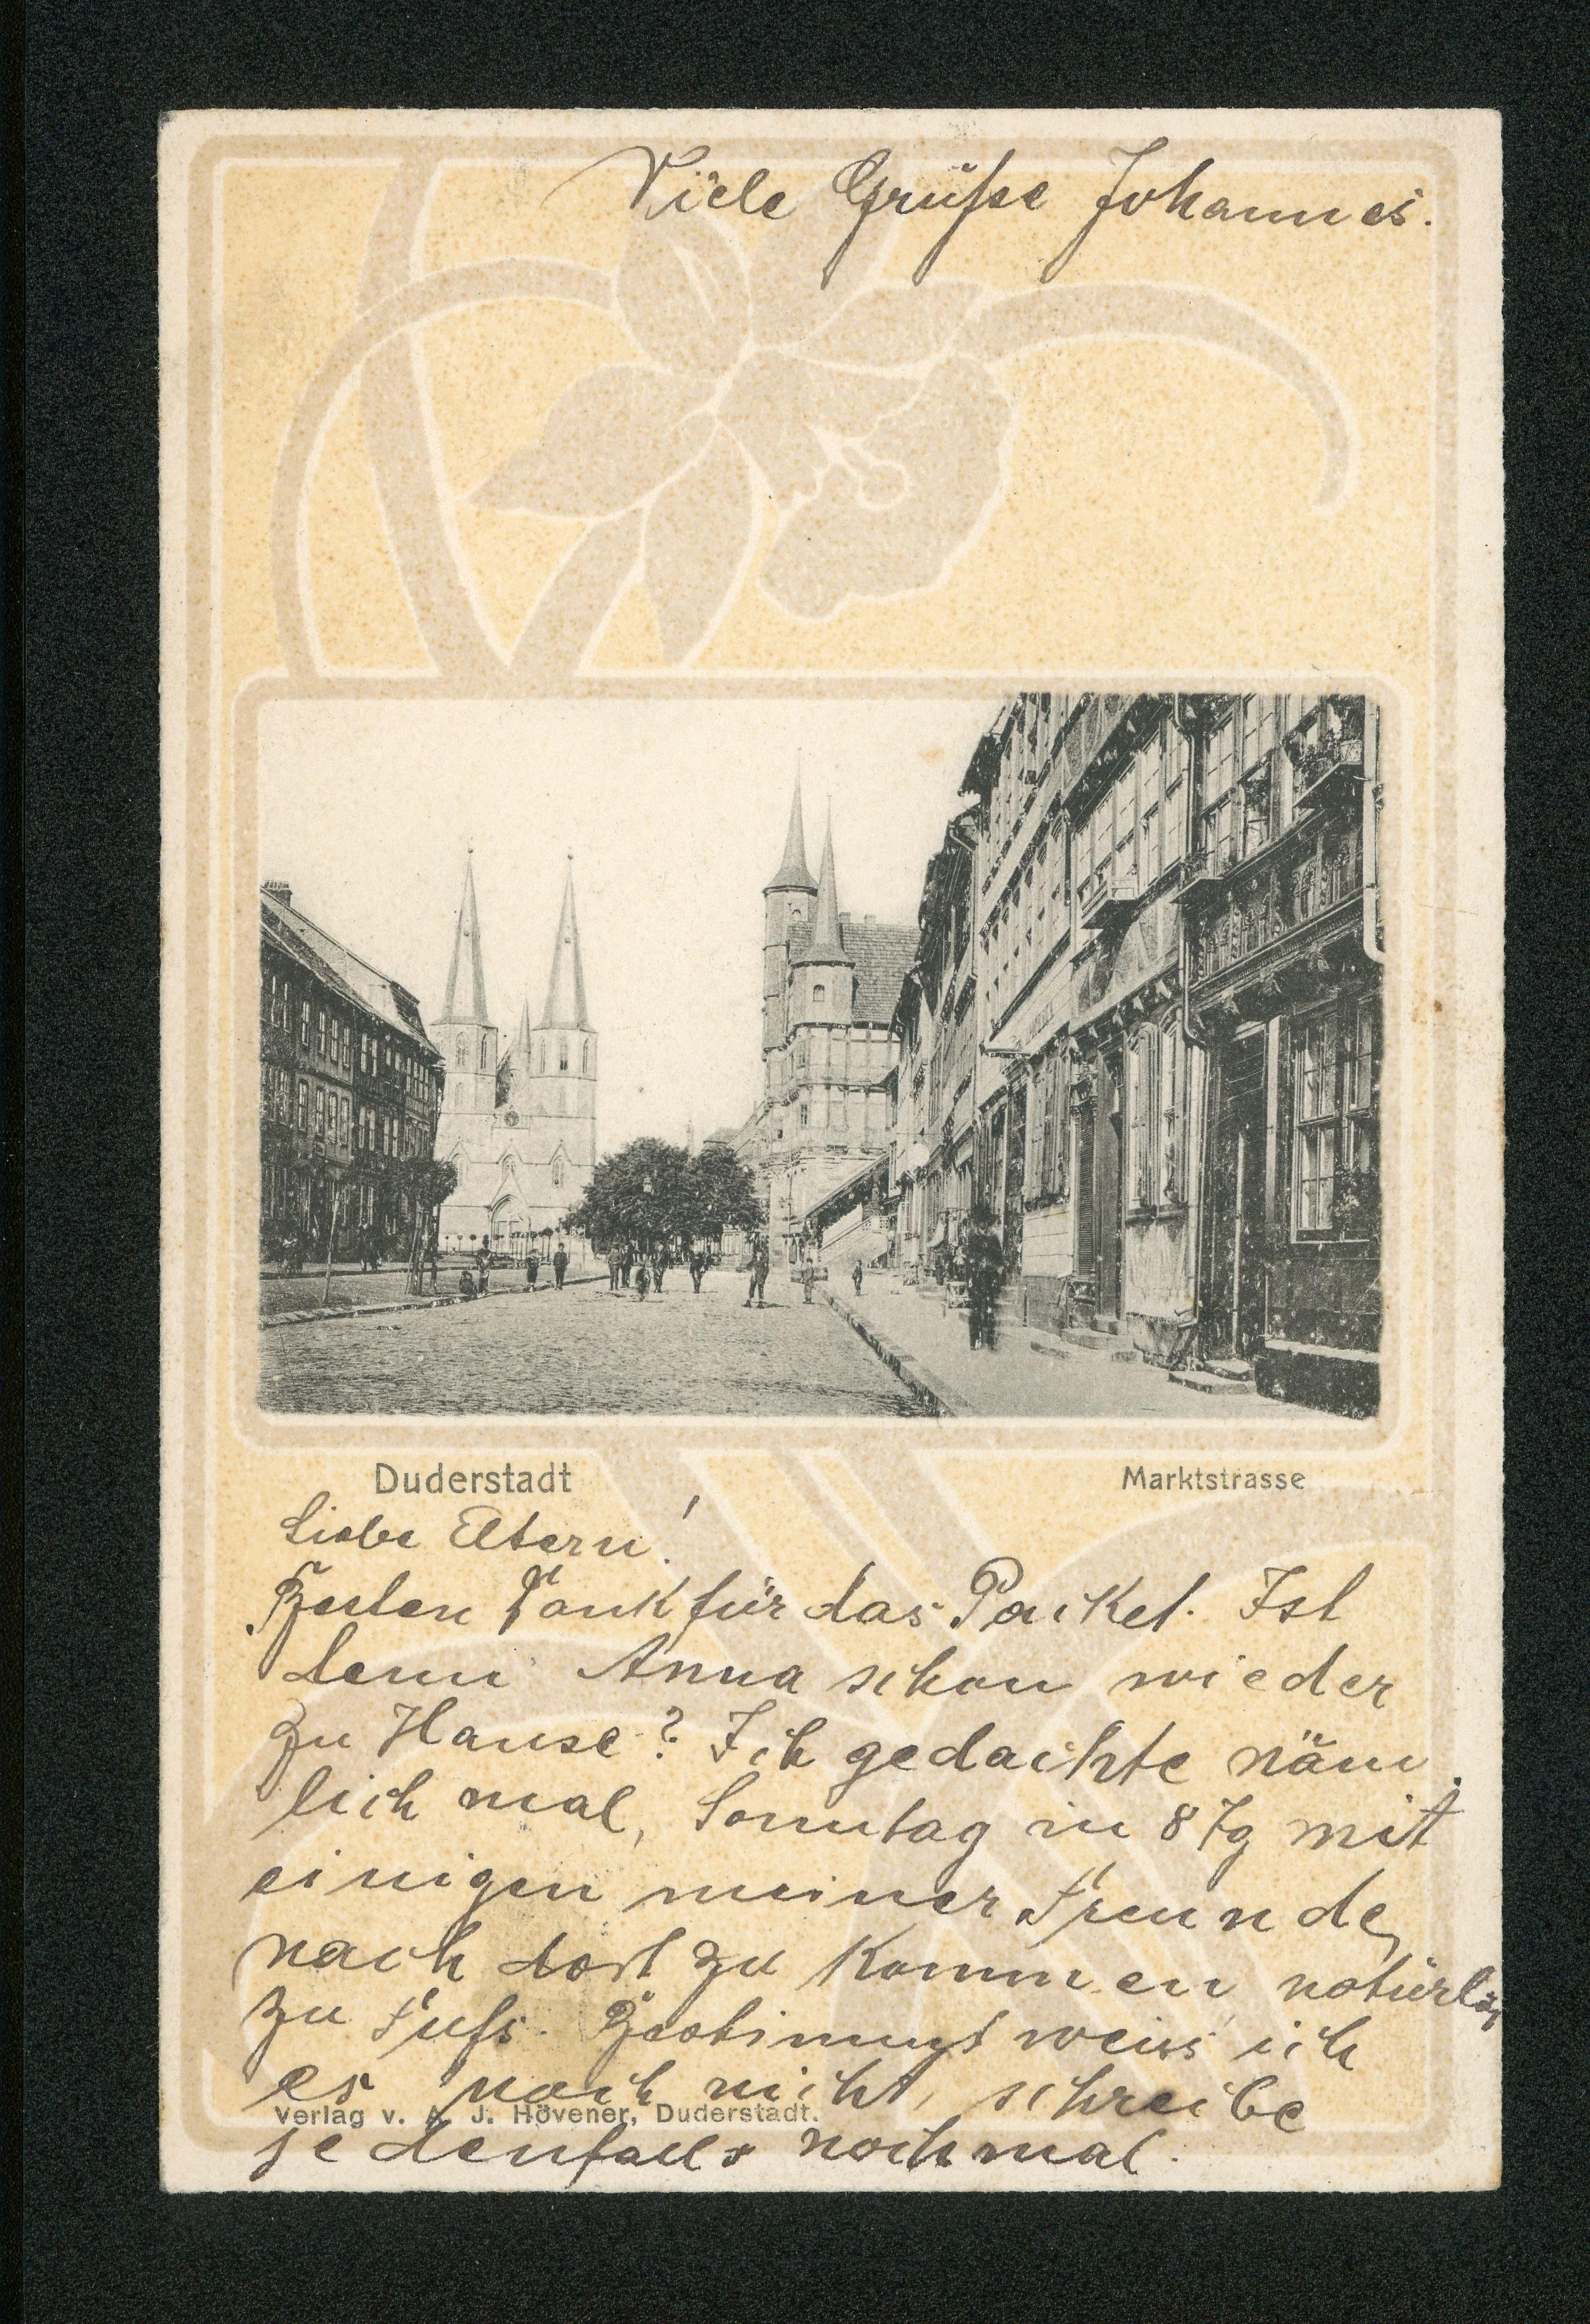 Viele Grüße Johannes.
Duderstadt
Marktstrasse
Liebe Eltern!
Besten Dank für das Packet. Ist
denn Anna schon wieder
zu Hause? Ich gedachte näm
lich mal, Sonntag in 8 Tg mit
einigen meiner Freunde,
nach dort zu kommen natürlich
zu Fuß. Bestimmt weiss ich
es noch nicht, schreibe
Verlag v. A. J. Hövener, Duderstadt.
jedenfalls nochmal.